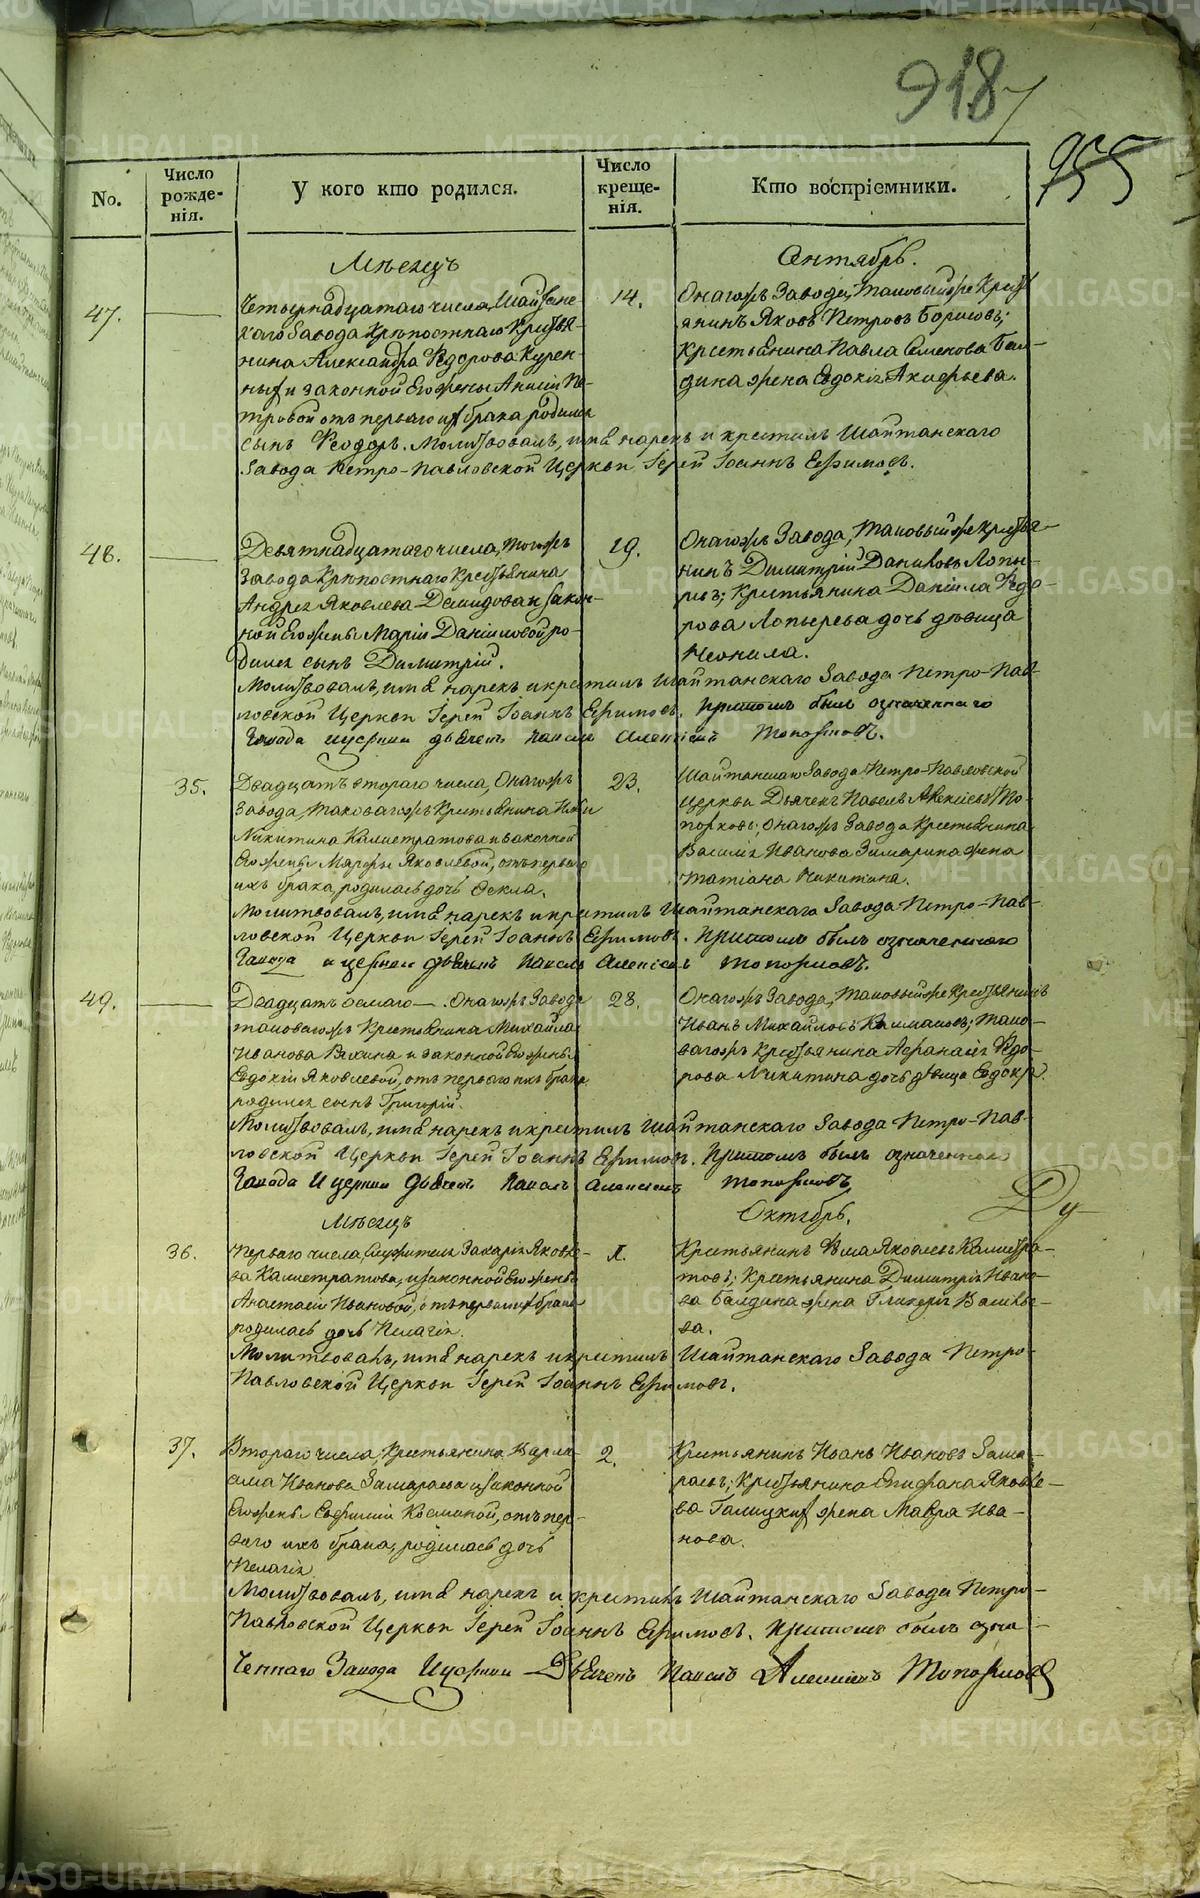 918
955
No.
Число рожденія.
У кого кто родился.
Число крещенія.
Кто воспріемники.
Мѣсяцъ
Сентябрь.
47.
Четырнадцатаго числа, Шайтанс-
каго Завода Крѣпостнаго Крестья-
нина Александра Ѳедорова Курен-
ныхъ и законной Его жены Анисіи Пе-
тровой отъ перваго ихъ брака родился
сынъ Ѳеодоръ. Молитвовалъ, имя нарекъ и крестилъ Шайтанскаго
Завода Петро-Павловской Церкви Іерей Іоаннъ Ефимовъ.
14.
Онагожъ Завода, таковый же Кресть-
янинъ Яковъ Петровъ Борисовъ;
Крестьянина Павла Семенова Бал-
дина жена Евдокія Акинфьева.
48.
Девятнадцатаго числа, тогожъ
Завода Крѣпостнаго Крестьянина
Андрея Яковлева Демидова и закон-
ной Его жены Маріи Даніиловой ро-
дился сынъ Димитрій.
Молитвовалъ, имя нарекъ и крестилъ Шайтанскаго Завода Петро-Пав-
ловской Церкви Іерей Іоаннъ Ефимовъ. При томъ былъ означеннаго
Завода и церкви дьячекъ Павелъ Алексѣевъ Топорковъ.
19.
Онагожъ Завода, таковый же Крестья-
нинъ Димитрій Даниловъ Лопы-
ревъ; Крестьянина Даніила Ѳедо-
рова Лопырева дочь дѣвица
Неонила.
35.
Двадцать втораго числа, Онагожъ
Завода, таковагожъ Крестьянина
Никитина Калистратова и законной
Его жены Марфы Яковлевой, отъ перваго
ихъ брака, родилась дочь Ѳекла.
Молитвовалъ, имя нарекъ и крестилъ Шайтанскаго Завода Петро-Пав-
ловской Церкви Іерей Іоаннъ Ефимовъ. При томъ былъ означеннаго
Завода и церкви дьячекъ Павелъ Алексѣевъ Топорковъ.
23.
Шайтанскаго Завода Петро-Павловской
Церкви Дьячекъ Павелъ Алексѣевъ То-
порковъ; Онагожъ Завода Крестьянина
Василія Иванова Зимарина жена
Татіана Никитина.
49.
Двадцать осьмаго — Онагожъ Завода
таковагожъ Крестьянина Михайла
Иванова и законной Его жены
Евдокіи Яковлевой, отъ перваго ихъ брака
родился сынъ Григорій.
Молитвовалъ, имя нарекъ и крестилъ Шайтанскаго Завода Петро-Пав-
ловской Церкви Іерей Іоаннъ Ефимовъ. При томъ былъ означеннаго
Завода и церкви дьячекъ Павелъ Алексѣевъ Топорковъ
28.
Онагожъ Завода, таковый же Крестьянинъ
Иванъ Михайловъ; тако-
вагожъ Крестьянина Афанасія Ѳедо-
рова Никитина дочь дѣвица
Ду-
Мѣсяцъ
Октябрь.
36.
Перваго числа, Служителя Захарія Яковле-
ва Калистратова, и законной Его жены
Анастасіи Ивановой, отъ перваго ихъ брака
родилась дочь Пелагія.
Молитвовалъ, имя нарекъ и крестилъ Шайтанскаго Завода Петро-
Павловской Церкви Іерей Іоаннъ Ефимовъ.
1.
Крестьянинъ Яковлевъ Калистра-
товъ; Крестьянина Димитрія Ивано-
ва Балдина жена Гликерія Василье-
ва.
37.
Втораго числа, Крестьянина Варла-
ама Иванова Замараева и законной
Его жены Евфиміи Косминой, отъ пер-
ваго ихъ брака, родилась дочь
Пелагія
Молитвовалъ, имя нарекъ и крестилъ Шайтанскаго Завода Петро-
Павловской Церкви Іерей Іоаннъ Ефимовъ. При томъ былъ озна-
ченнаго Завода и церкви Дьячекъ Павелъ Алексѣевъ Топорковъ
2.
Крестьянинъ Иванъ Ивановъ Зама-
раевъ; Крестьянина Епифана Яковле-
ва Галицкихъ жена Мавра Ива-
нова.
METRIKI.GASO-URAL.RU